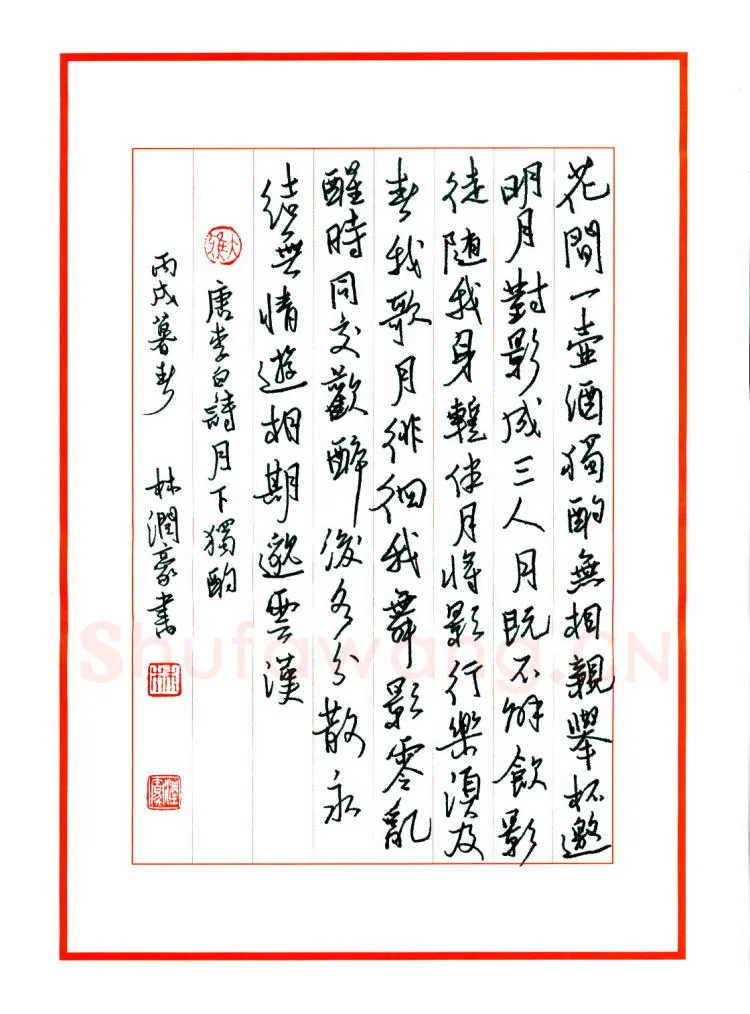 花間一壺酒獨酌無相親舉杯邀
明月對影成三人月既不解飲影
徒隨我身暫伴月將影行樂須及
春我歌月徘徊我舞影零亂
醒時同交歡醉後各分散永
結無情遊相期邈雲漢
唐李白詩月下獨酌
丙戌暮春 林潤豪書
Shufawang.CN